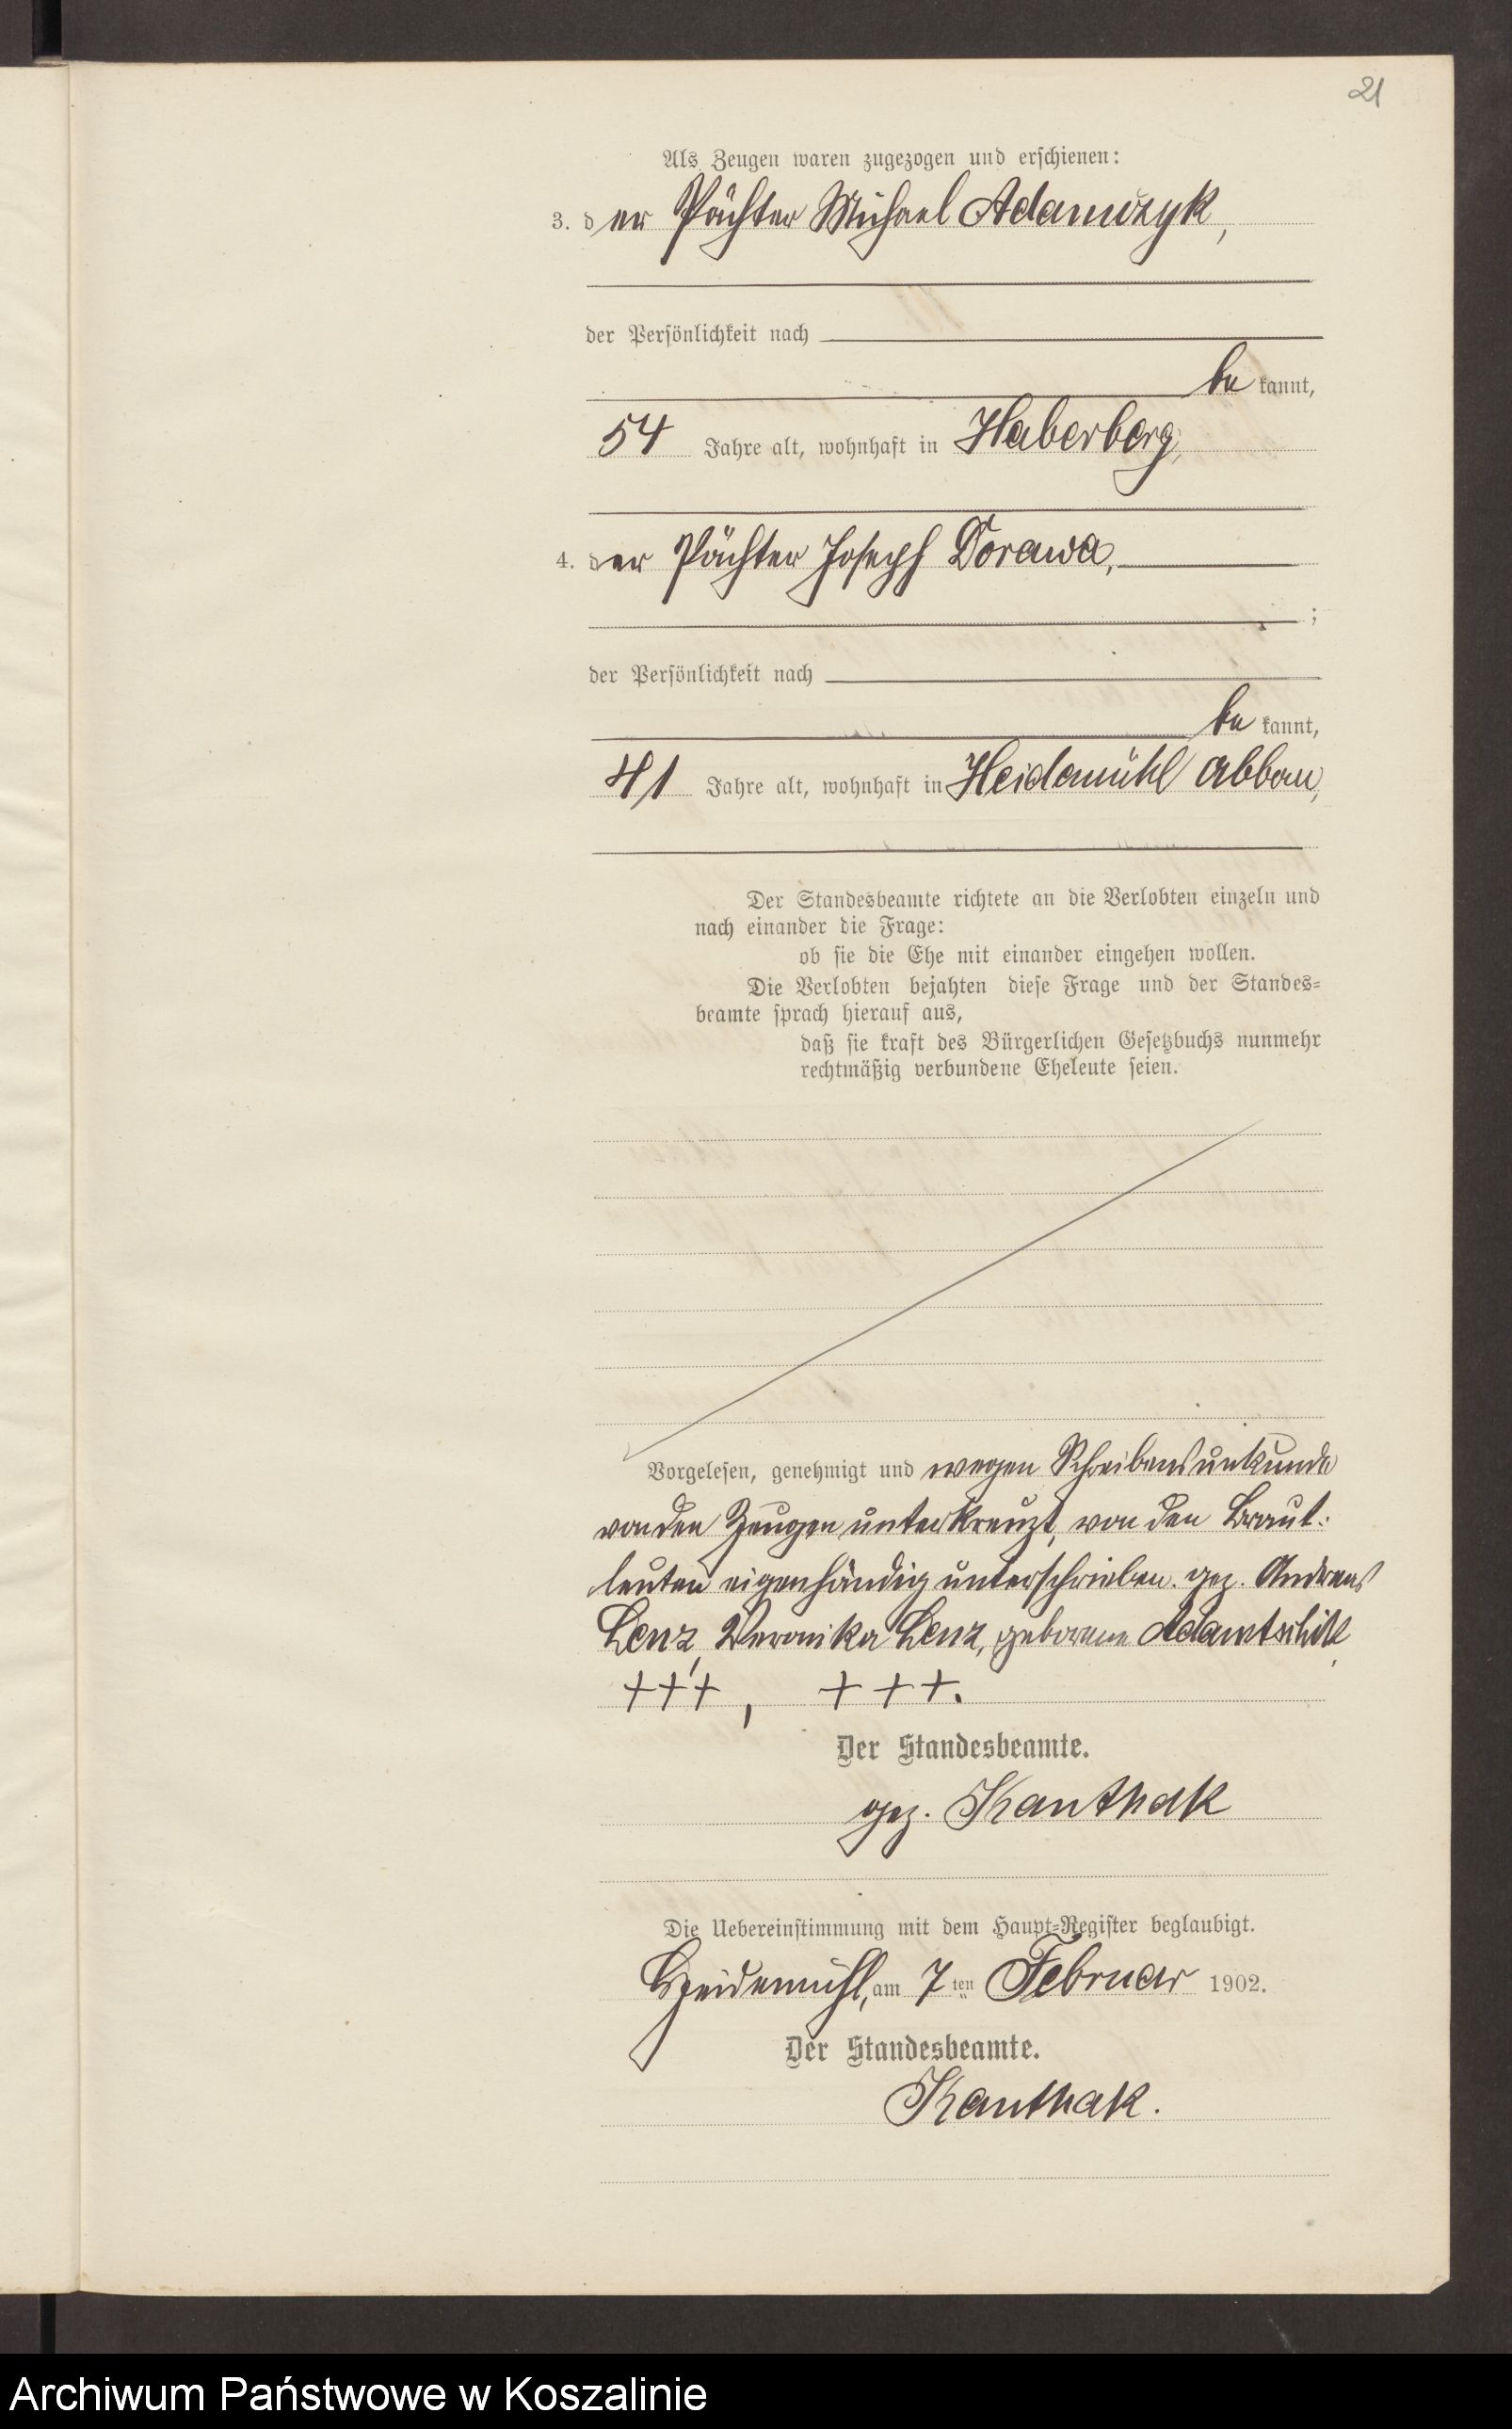 21
Als Zeugen waren zugezogen und erschienen:
3. der Pächter Michael Adamczyk,
der Persönlichkeit nach
be kannt,
54 Jahre alt, wohnhaft in Haberberg,
4. der Pächter Joseph Dorawa,
;
der Persönlichkeit nach
be kannt,
41 Jahre alt, wohnhaft in Heidemühl Abbau,
Der Standesbeamte richtete an die Verlobten einzeln und
nach einander die Frage:
ob sie die Ehe mit einander eingehen wollen.
Die Verlobten bejahten diese Frage und der Standes=
beamte sprach hierauf aus,
daß sie kraft des Bürgerlichen Gesetzbuchs nunmehr
rechtmäßig verbundene Eheleute seien.
Vorgelesen, genehmigt und wegen Schreibensunkunde
von den Zeugen unterkreuzt, von den Braut-
leuten eigenhändig unterschrieben. gez. Andreas
Lenz, Veronika Lenz, geborene Adamtschik,
+++, +++.
Der Standesbeamte.
gez. Kanthak
Die Uebereinstimmung mit dem Haupt=Register beglaubigt.
Heidemühl, am 7 ten Februar 1902.
Der Standesbeamte.
Kanthak.
Archiwum Państwowe w Koszalinie